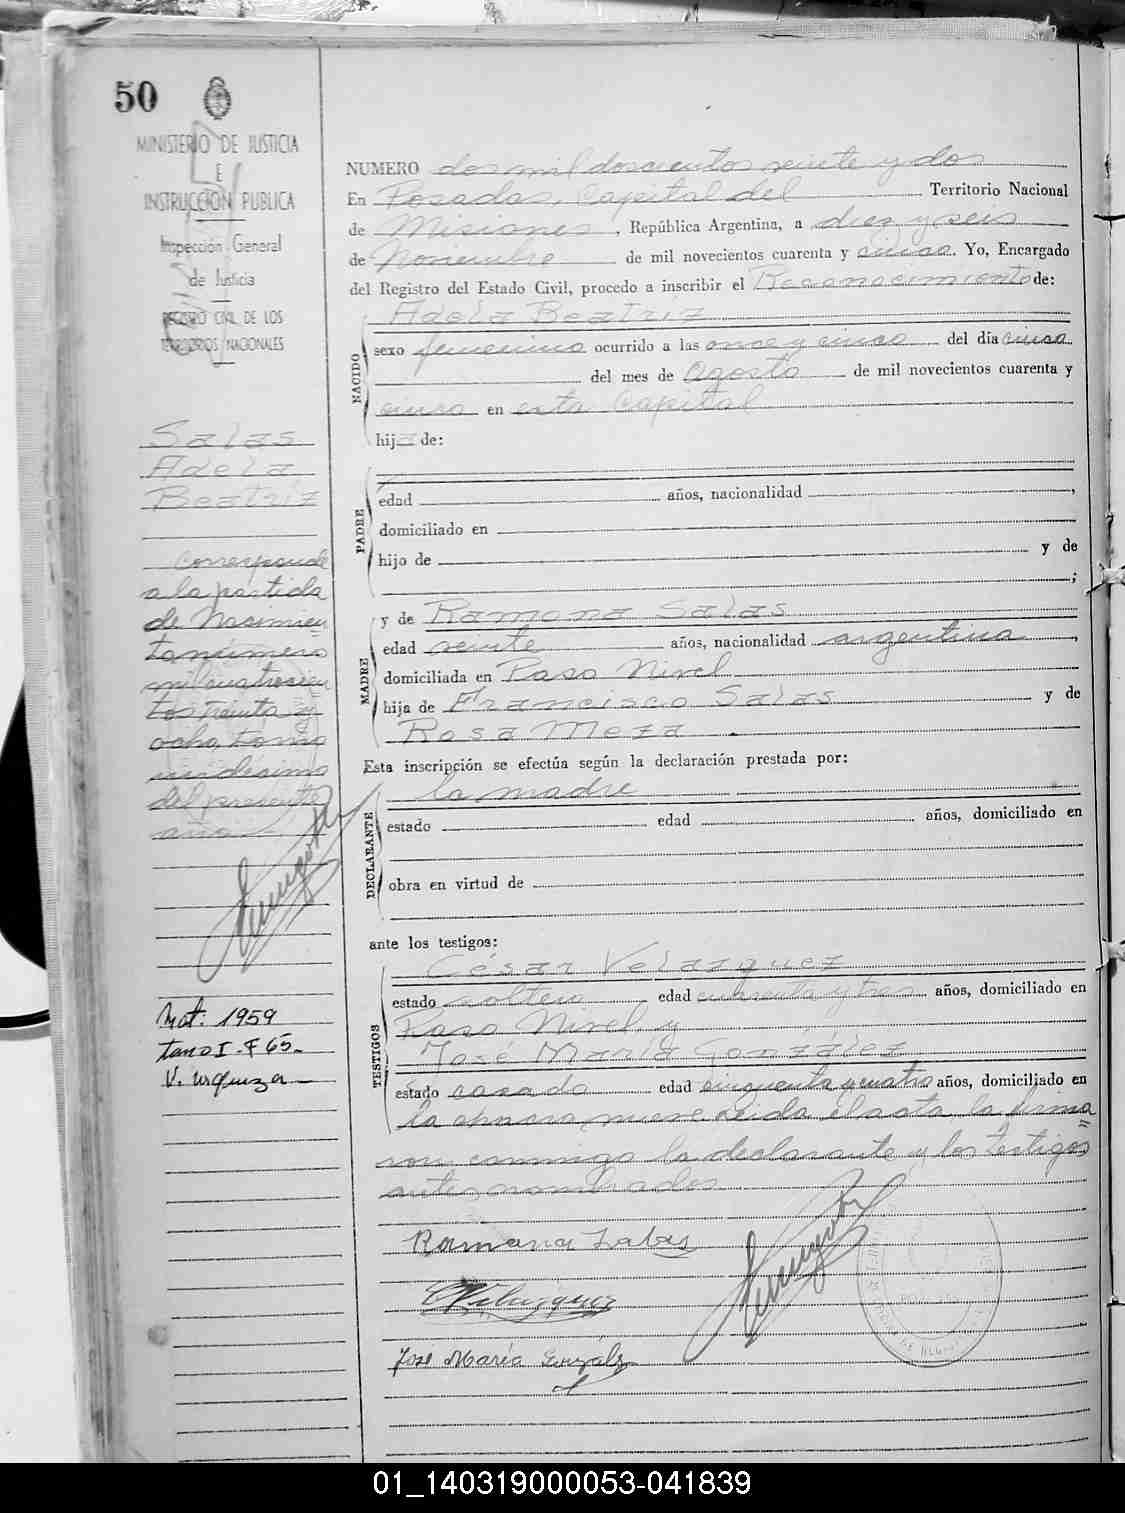 50
MINISTERIO DE JUSTICIA
E
INSTRUCCION PUBLICA
Inspección General
de Justicia
REGISTRO CIVIL DE LOS
TERRITORIOS NACIONALES
Salas
Adela
Beatriz
corresponde
a la partida
de Nacimien
to número
mil cuatrocien
tos treinta y
ocho, tomo
undécimo
del presente
año
Mat: 1959
tomo I - F 65.-
V. urquiza
NUMERO dos mil doscientos veinte y dos
En Posadas, Capital del Territorio Nacional
de Misiones, República Argentina, a diez y seis
de Noviembre de mil novecientos cuarenta y cinco. Yo, Encargado
del Registro del Estado Civil, procedo a inscribir el Reconocimiento de:
NACIDO
Adela Beatriz
sexo femenino ocurrido a las once y cinco del día cinco
del mes de agosto de mil novecientos cuarenta y
cinco en esta Capital
hija de:
PADRE
edad años, nacionalidad ,
domiciliado en
hijo de y de
;
MADRE
y de Ramona Salas
edad veinte años, nacionalidad argentina,
domiciliada en Paso Nivel
hija de Francisco Salas y de
Rosa Meza.
Esta inscripción se efectúa según la declaración prestada por:
DECLARANTE
la madre
estado edad años, domiciliado en
obra en virtud de
ante los testigos:
TESTIGOS
César Velazquez
estado soltero edad cuarenta y tres años, domiciliado en
Paso Nivel y
José María González
estado casado edad cinquenta y cuatro años, domiciliado en
la Leida el acta, la firma
ron conmigo la declarante y los testigos
antes nombrados
Ramona Salas
CVelazquez
José María González
01_140319000053-041839